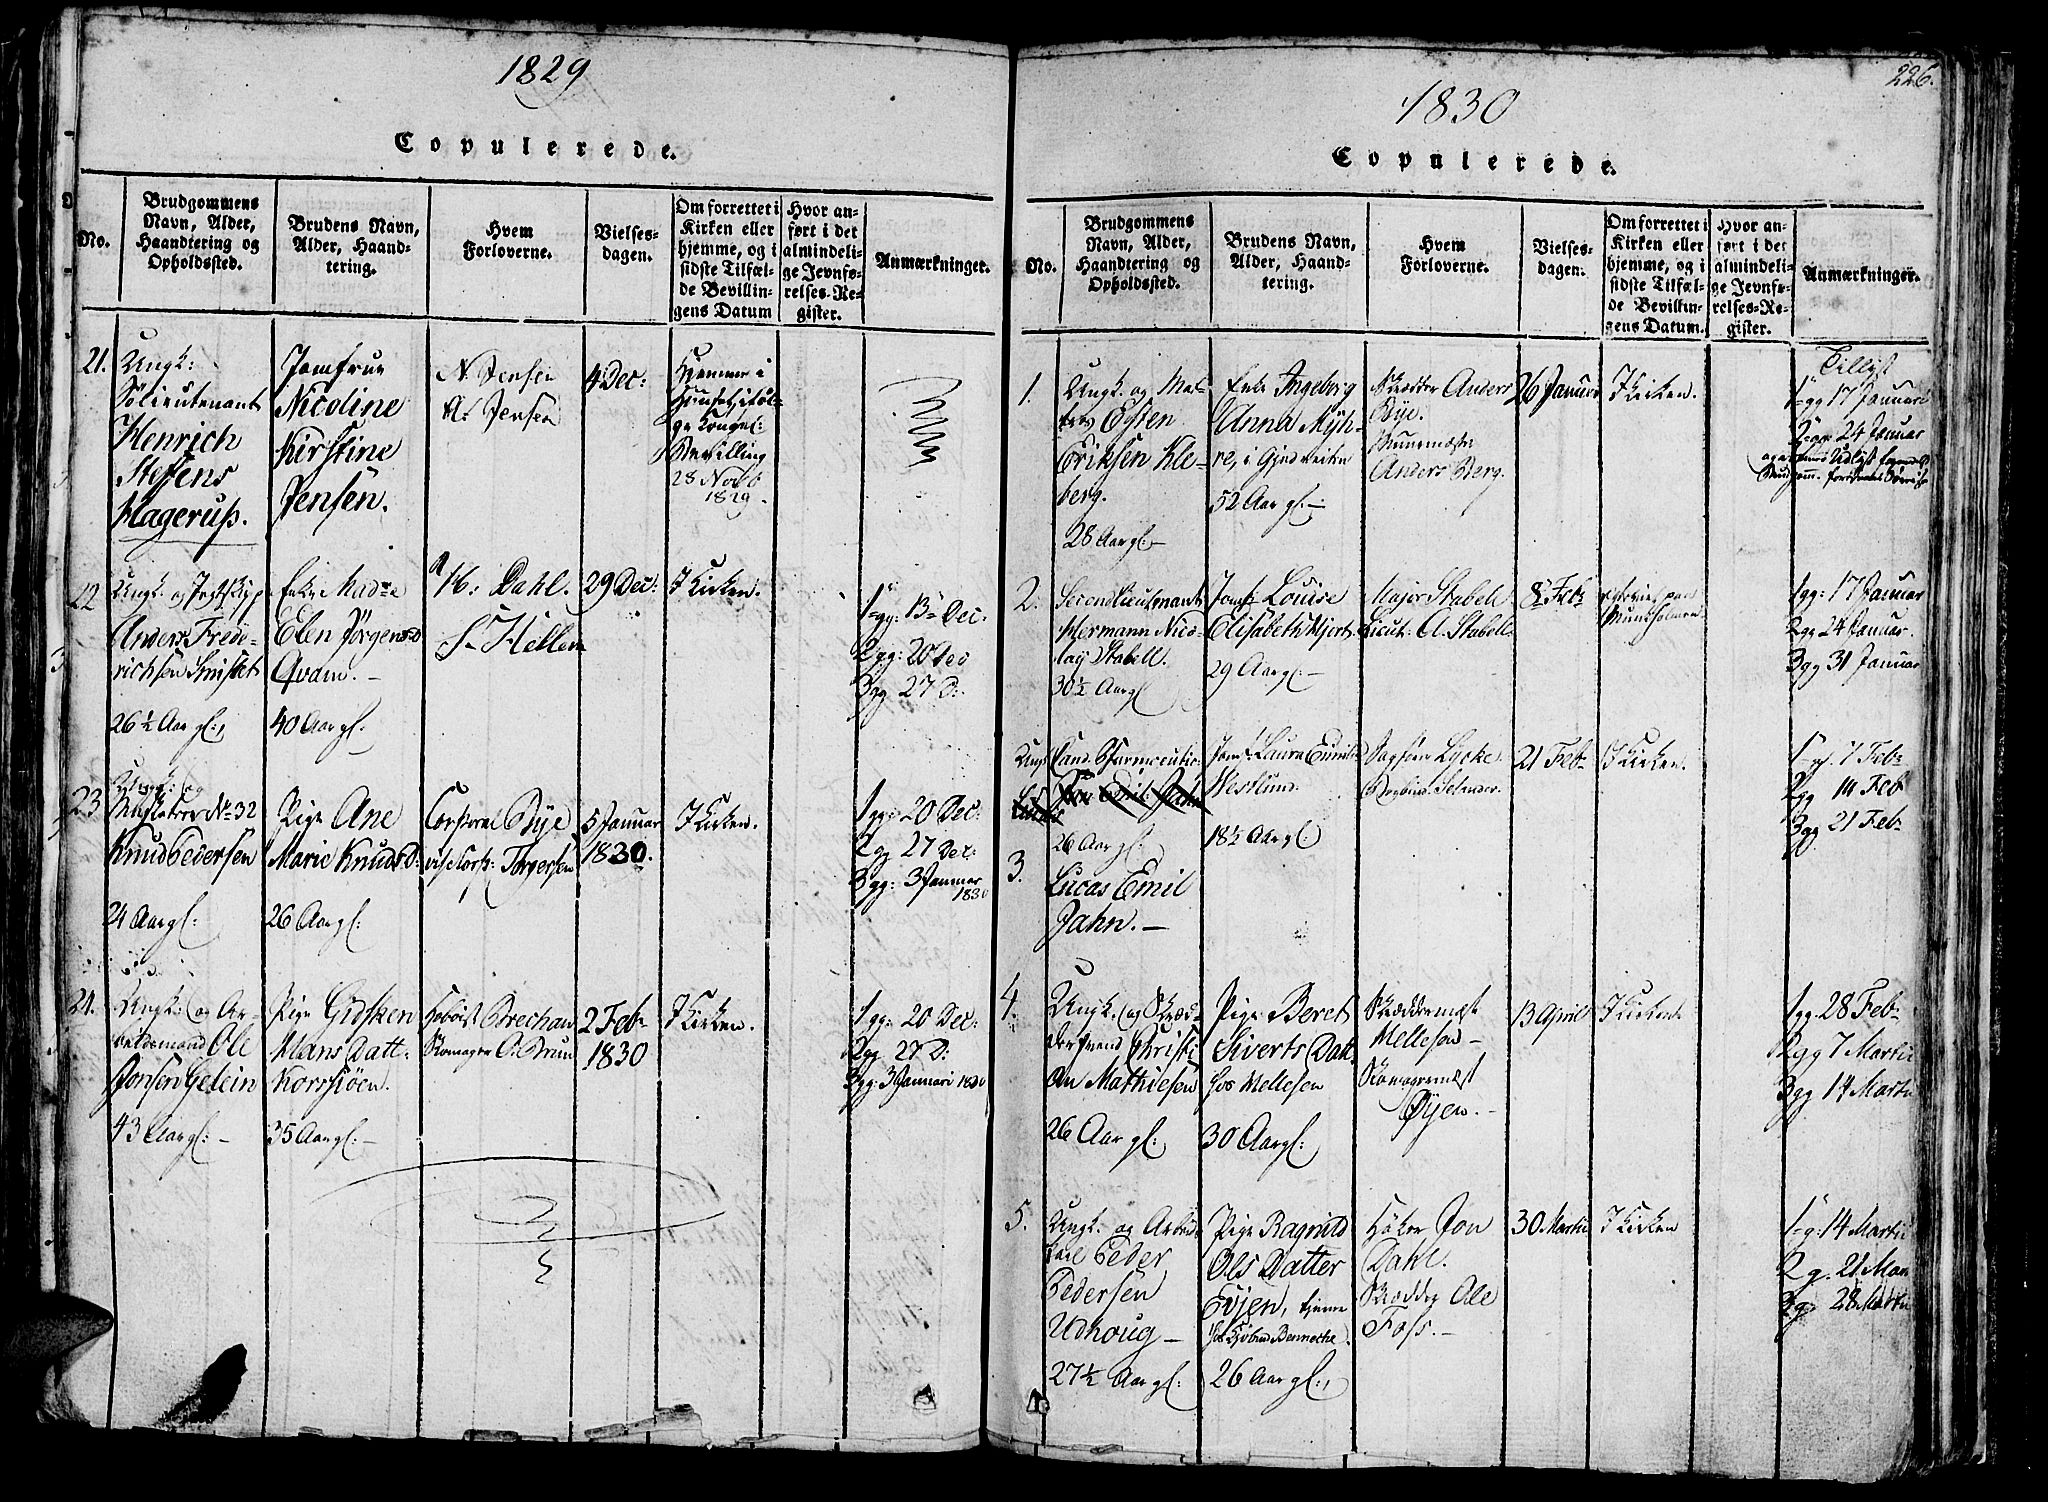 1829
Copulerede.
No.
Brudgommens
Navn, Alder,
Haandtering og
Opholdssted.
Brudens Navn,
Alder, Haand-
tering.
Hvem
Forloverne.
Vielses-
dagen.
Om forrettet i
Kirken eller
hjemme, og i
sidste Tilfæl-
de Bevillin-
gens Datum
Hvor an-
ført i det
almindeli-
ge Jevnfø-
relses-Re-
gister.
Anmærkninger.
21.
Ungk:
Sölieutenant
Henrich
Steffens
Hagerup.
Jomfrue
Nicoline
Kirstine
Jensen.
N. Jensen
A. Jensen
4 Dec:
Hjemme i
Huset iföl-
ge Kongel:
Bevilling
28 Novb
1829.
22
Ungk. og
Anders Frede-
richsen
26½ Aar gl:,
Enke Mad^me
Elen Jörgensd
Qvam. –
40 Aar gl.
H: Dahl.
Hellem
29 Dec:
I Kirken.
1^ste gg: 13^de Dec:
2 gg: 20 Dec
3 gg 27 D:
23
Ungk: og
Musketeer N^o 32
Knud Pedersen
24 Aar gl:
Pige Ane
Marie Knudsd:
26 Aar gl:
Corporal Bye
vise Corp: Torgersen
5 Januar
1830.
I Kirken.
1 gg: 20 Dec:
2 gg 27 Dec:
3 gg: 3 Januar
1830
24.
Ungk: og Ar-
beidsmand Ole
Jonsen Gelein
43 Aar gl: –
Pige Gidsken
Hans Datt:
Korssiöen.
35 Aar gl: –
Hoboist Brechan
Skomager O. Brun
2 Feb^r
1830
I Kirken.
1 gg: 20 Dec:
2 gg: 27 D:
3 gg: 3 Januari 1830
226.
1830
Copulerede.
No.
Brudgommens
Navn, Alder,
Haandtering og
Opholdssted.
Brudens Navn,
Alder, Haand-
tering.
Hvem
Forloverne.
Vielses-
dagen.
Om forrettet i
Kirken eller
hjemme, og i
sidste Tilfæl-
de Bevillin-
gens Datum.
Hvor an-
ført i det
almindeli-
ge Jevnfø-
relses-Re-
gister.
Anmærkninger.
1.
Ungk. og
Esten
Eriksen Kle-
berg.
28 Aar gl: –
Enke Ingeborg
Anna Myh-
re, i Gjedveiten
52 Aar gl. –
Skrædder Anders
Bye.
Muurmester
Anders Berg.
26 Januar
I Kirken.
Tillyst
1^ste gg 17 Januari
2 gg: 24 Januar
2.
Secondlieutenant
Hermann Nico-
lay Stabell.
30½ Aar gl
Jomf: Louise
Elisabeth Hjort
29 Aar gl: –
Major Stabell
Lieut: A. Stabell
8^de Feb^r
Munkholmen
1 gg: 17 Januar
2 gg 24 Januar.
3 gg 31 Januar
Ungk
Cand. Pharmaceutic:
Emil Jahn
26 Aar gl:
3.
Lucas Emil
Jahn. –
Jomf: Laura Emilie
Westlund.
18½ Aar gl:
Sagförer Lycke
Selander.
21 Feb^r
I Kirken.
1^ste g: 7 Feb^r
2 gg 14 Feb^r
3 gg 21 Feb^r
4.
Ungk. og Skræd-
dersvend Christi-
an Mathiesen
26 Aar gl:
Pige Beret
Siverts Datt.
hos Mellesen
30 Aar gl:
Skræddermest
Mellesen –
Skomagermest
Öyen. –
13 April
I Kirken
1 gg. 28 Feb^r
2 gg 7 Martii
3 gg 14 Martii
5.
Ungk. og Arbeids-
karl Peder
Pedersen
Udhoug –
27½ Aar gl:
Pige Ragnild
Ols Datter
Evjen, tjener
hos Kjöbmd Bennecke.
26 Aar gl:,
Höker Jon
Dahl.
Skrædder Ole
Foss. –
30 Martii
I Kirken
1^ste g: 14 Martii
2 g: 21 Mar
3 g: 28 Martii